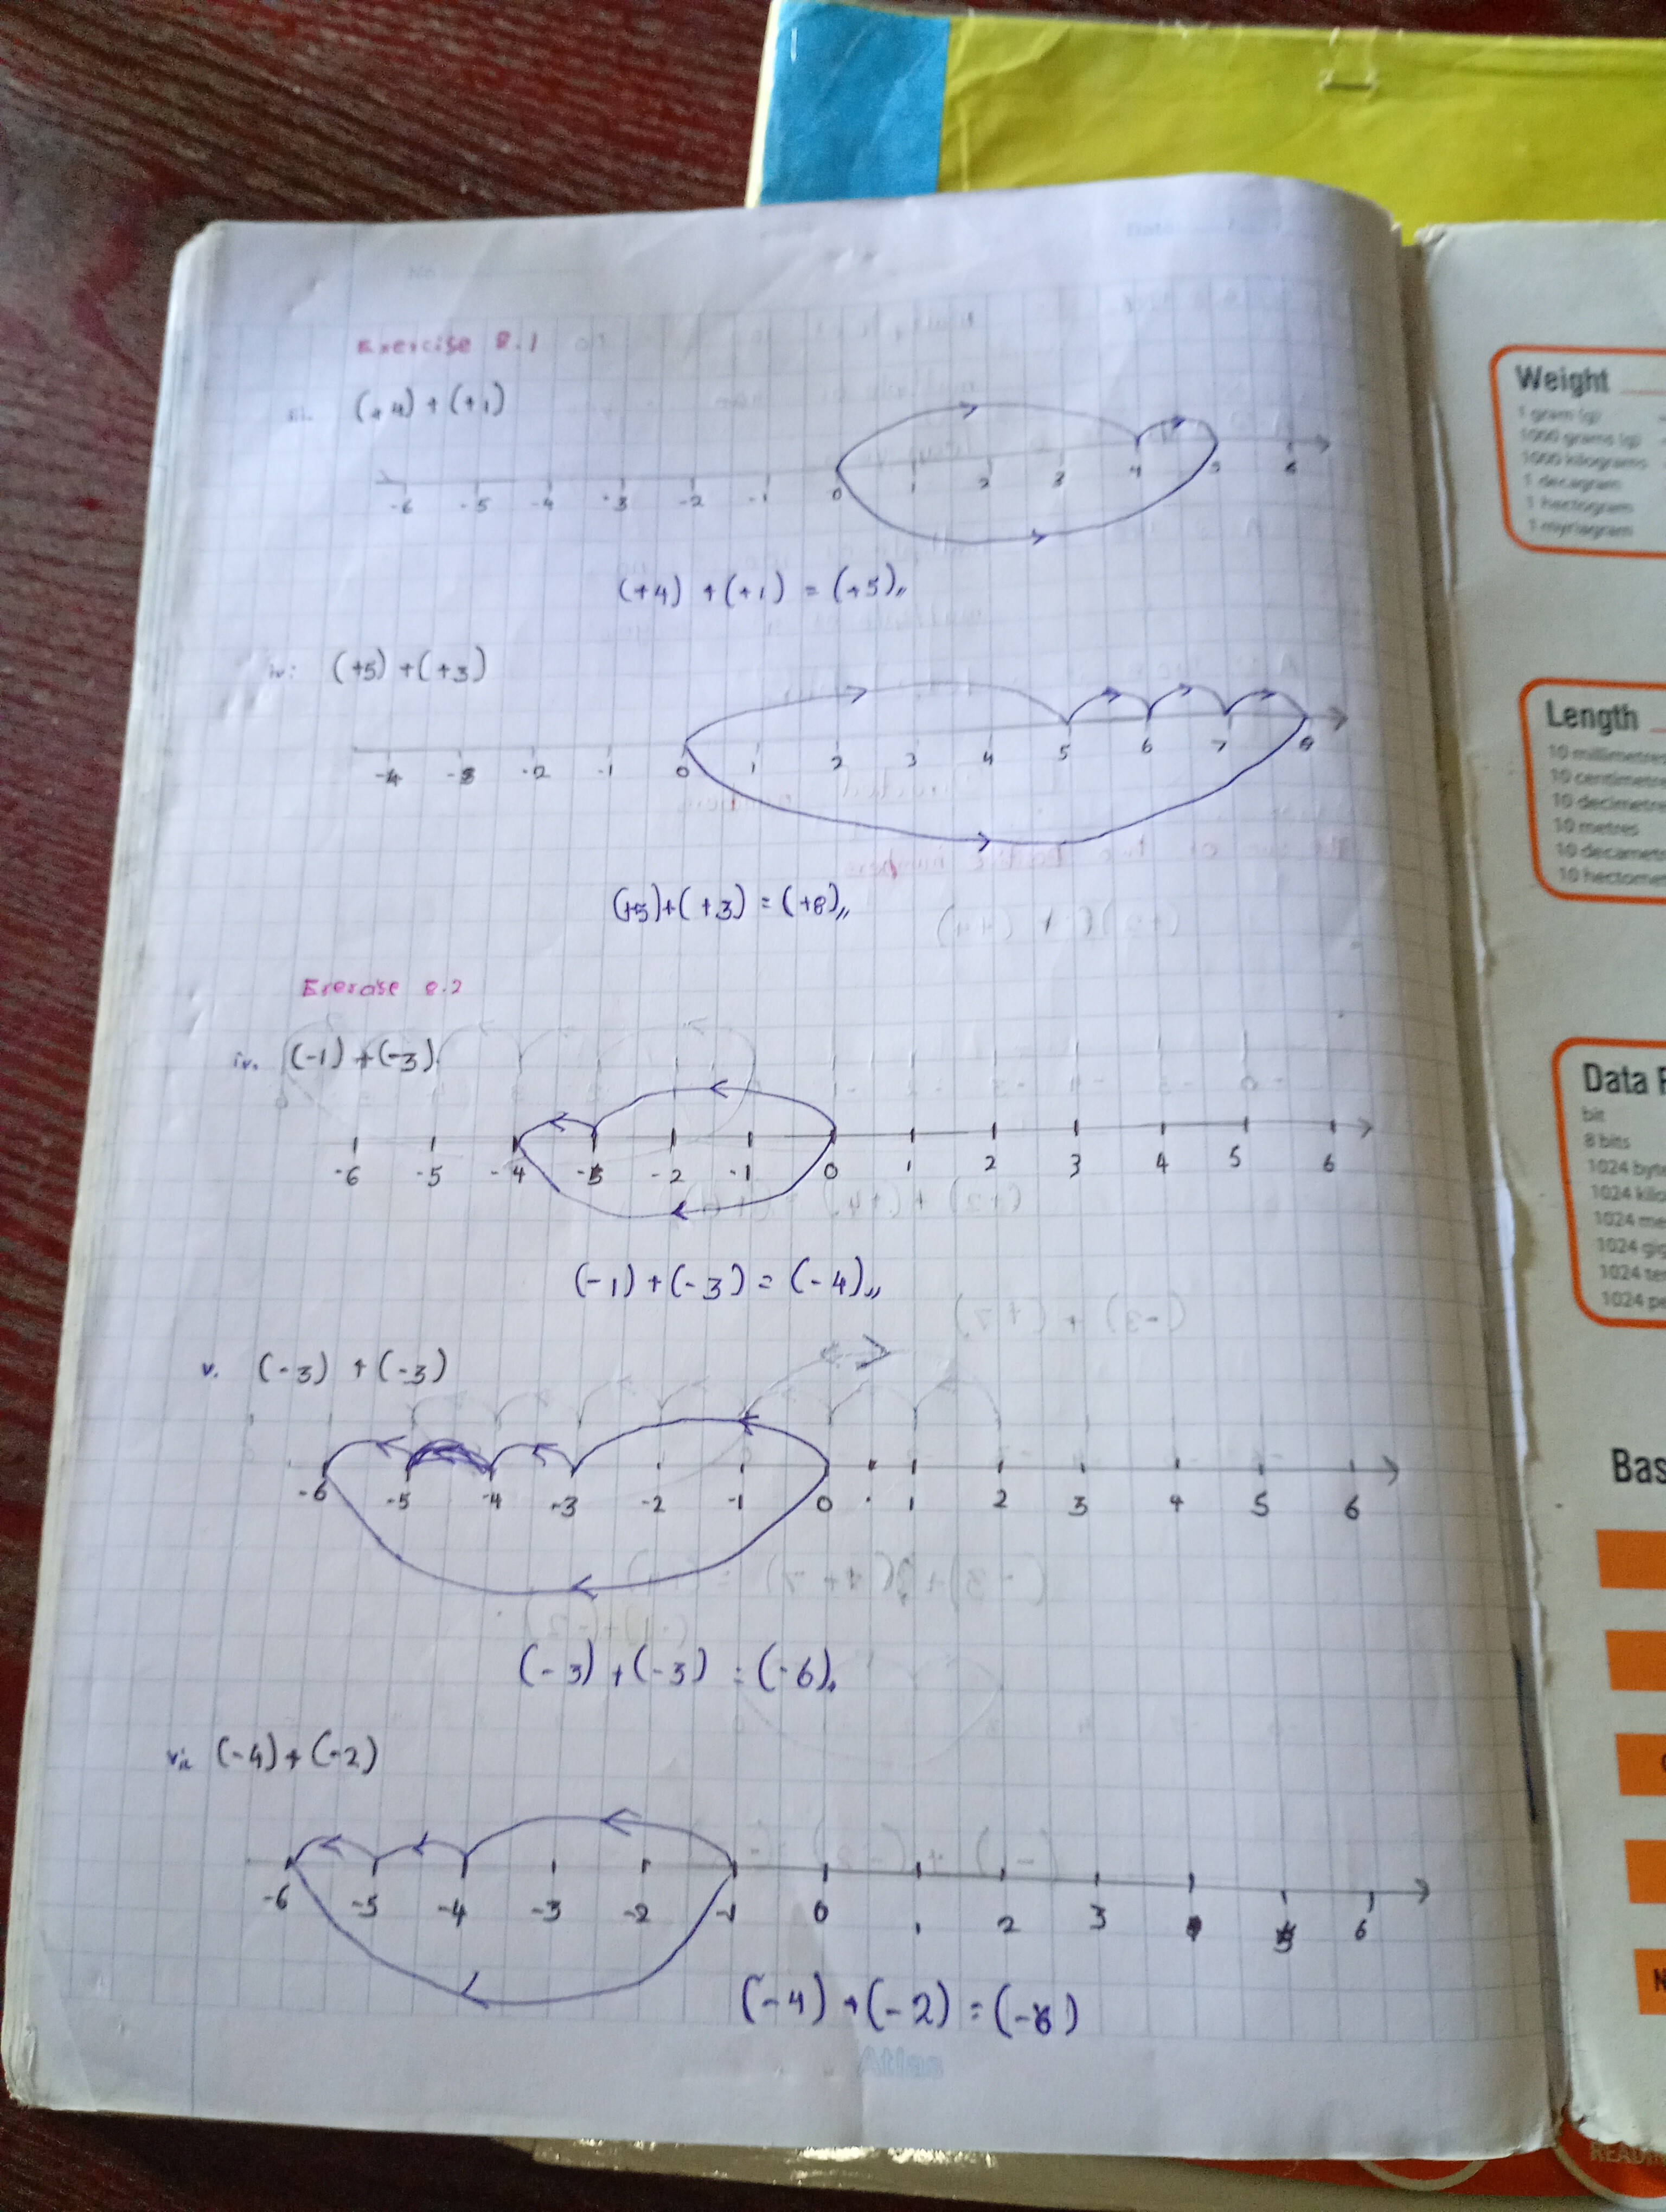 Exercise 8.1
iii. (+4) + (+1)
-6 -5 -4 -3 -2 -1 0 1 2 3 4 5 6
(+4) + (+1) = (+5)
iv. (+5) + (+3)
-4 -3 -2 -1 0 1 2 3 4 5 6 7 8
(+5) + (+3) = (+8)
Exercise 8.2
iv. (-1) + (-3)
-6 -5 -4 -3 -2 -1 0 1 2 3 4 5 6
(-1) + (-3) = (-4)
v. (-3) + (-3)
-6 -5 -4 -3 -2 -1 0 1 2 3 4 5 6
(-3) + (-3) = (-6)
(-4) + (-2)
-6 -5 -4 -3 -2 -1 0 1 2 3 5 6
(-4) + (-2) = (-6)
Atlas
Weight
1 gram (g)
1000 grams (g)
1000 kilograms
1 decagram
1 hectogram
1 myriagram
Length
10 millimetres
10 centimetre
10 decimetre
10 metres
10 decametr
10 hectomet
Data
bit
8 bits
1024 byte
1024 kilo
1024 me
1024 gig
1024 ter
1024 pe
Bas
READIN